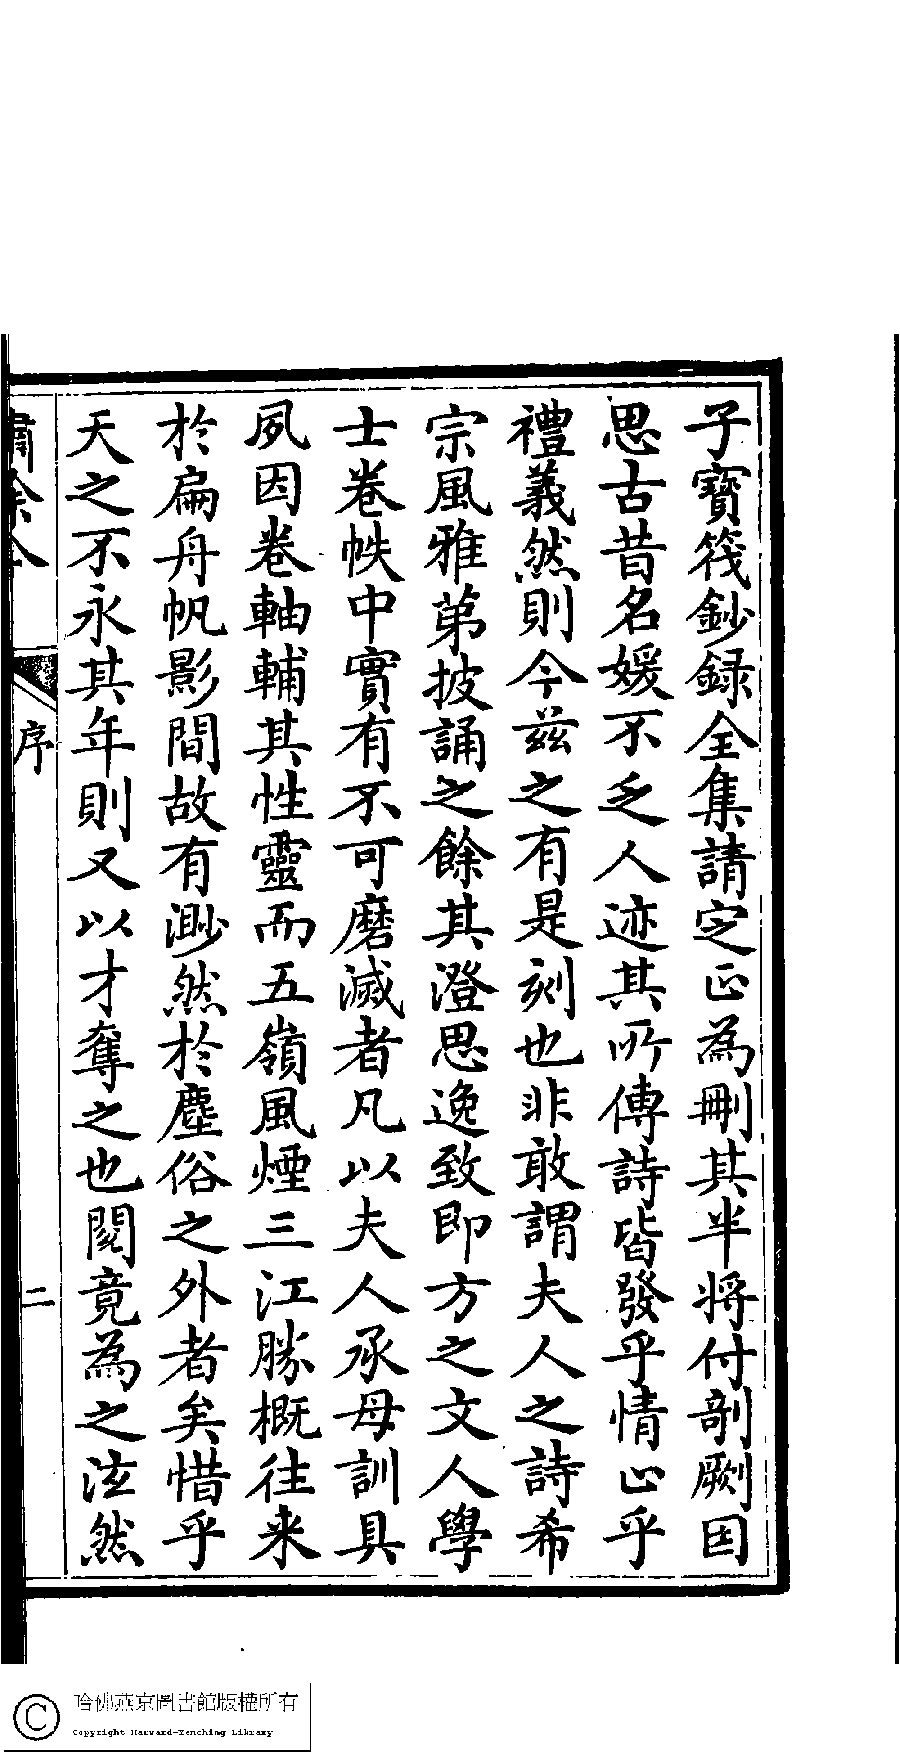 子寶筏鈔録全集請定正為刪其半將付剞劂因
思古昔名媛不乏人迹其所傳詩皆發乎情止乎
禮義然則今茲之有是刻也非敢謂夫人之詩希
宗風雅第披誦之餘其澄思逸致即方之文人學
士卷帙中實有不可磨滅者凡以夫人承母訓具
夙因卷軸輔其性靈而五嶺風煙三江勝概往来
於扁舟帆影間故有渺然於塵俗之外者矣惜乎
天之不永其年則又以才奪之也閱竟為之泫然
序
二
哈佛燕京圖書館版權所有
Copyright Harvard-Yenching Library